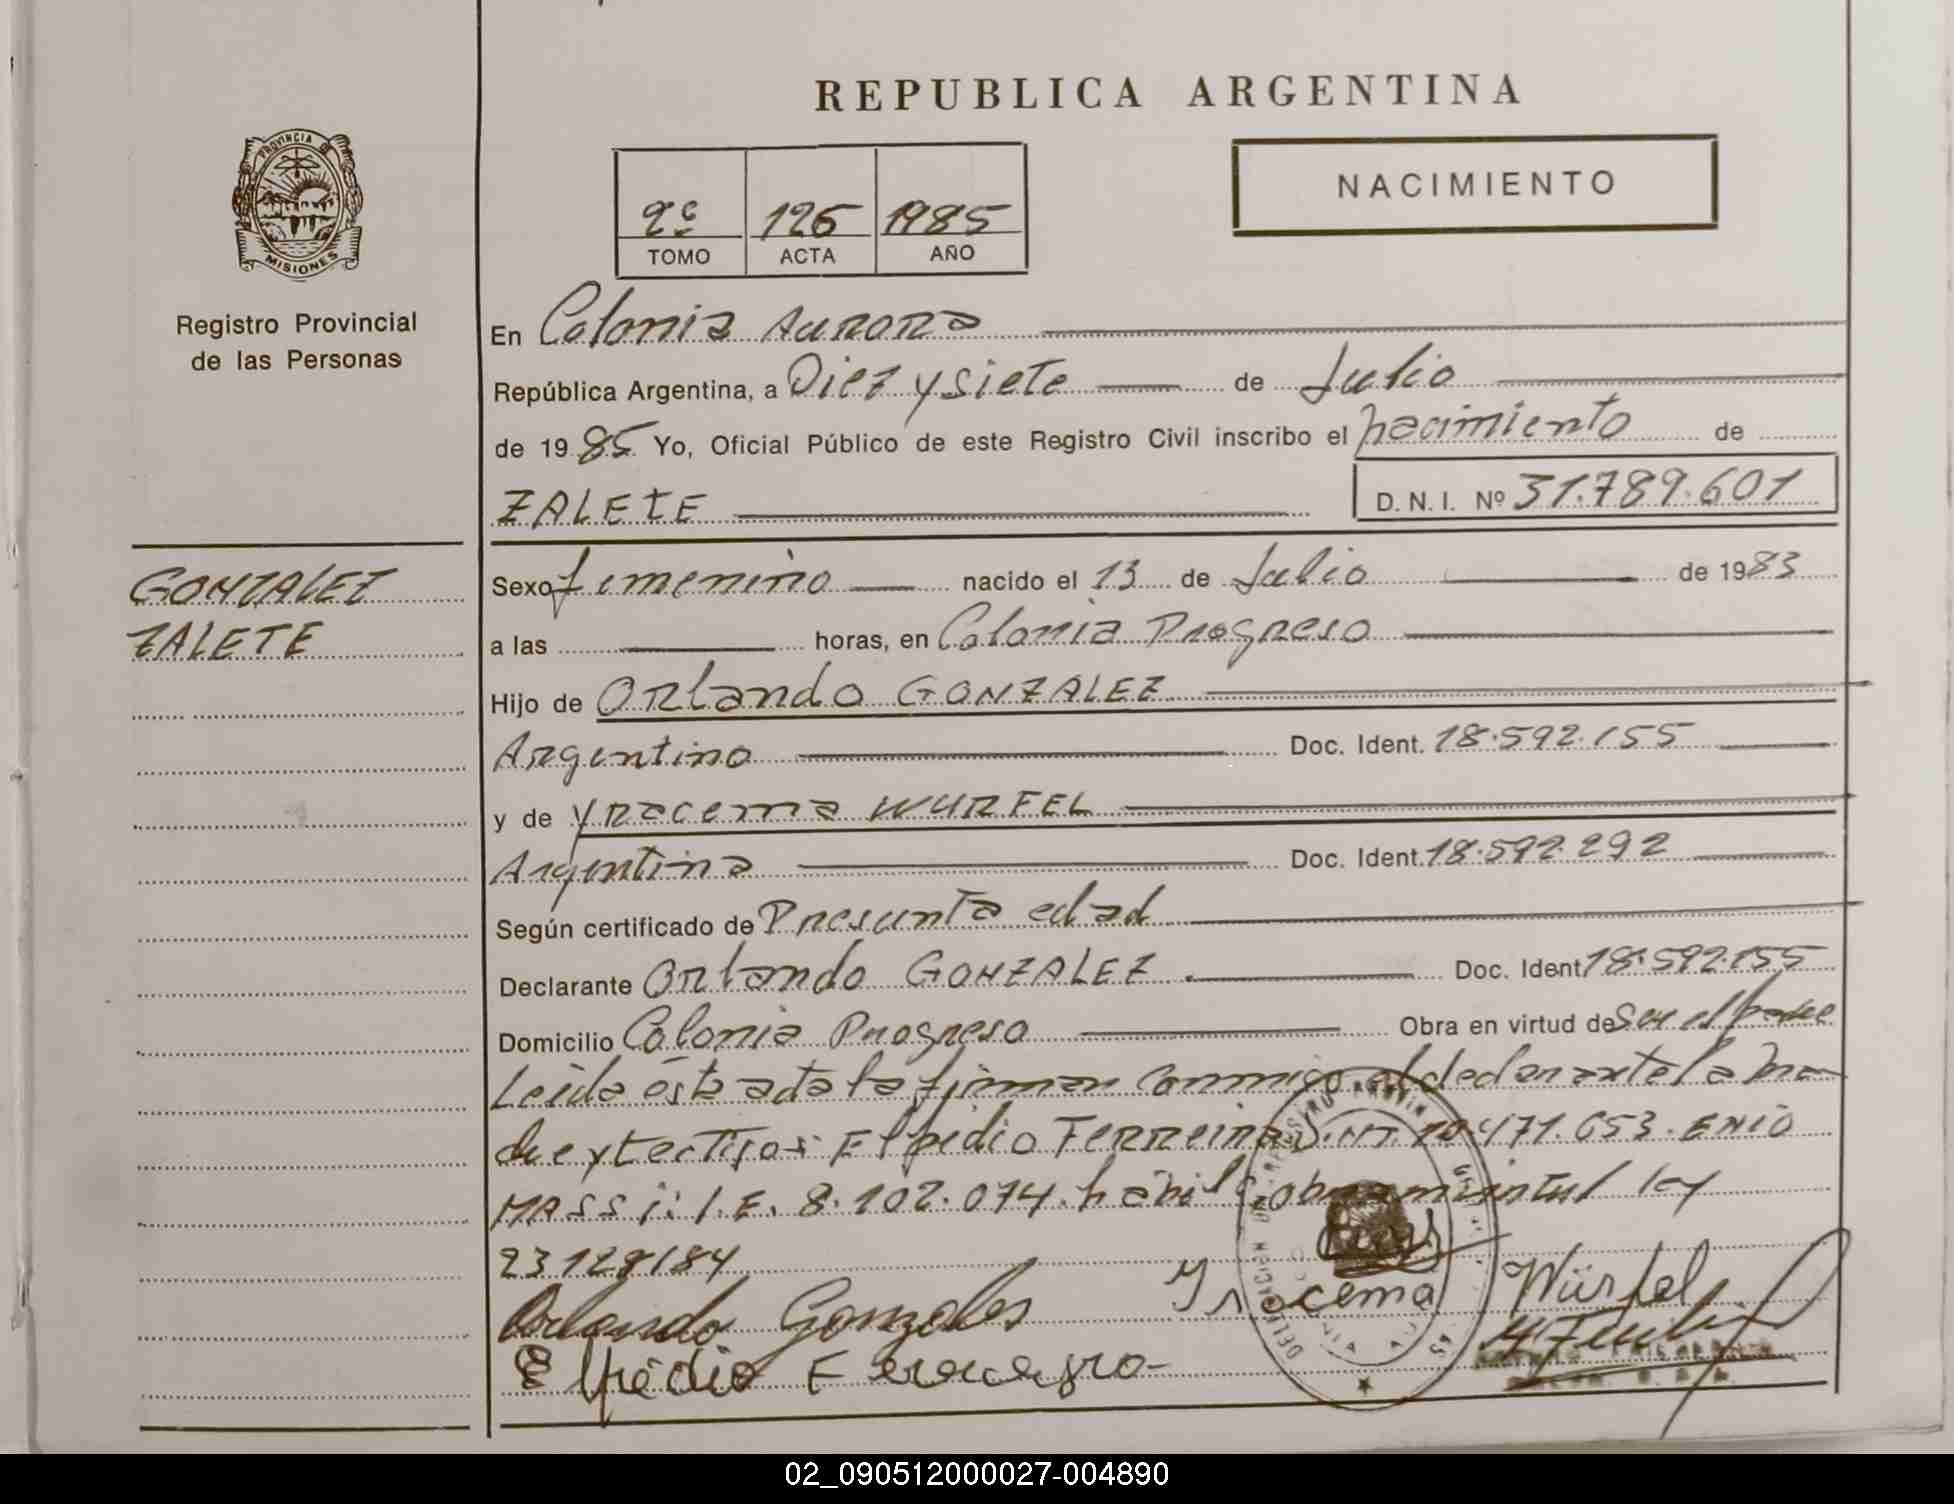 REPUBLICA ARGENTINA
PROVINCIA DE
MISIONES
Registro Provincial
de las Personas
2º 126 1985
TOMO ACTA AÑO
NACIMIENTO
En Colonia Aurora
República Argentina, a Diez y siete de Julio
de 1985 Yo, Oficial Público de este Registro Civil inscribo el nacimiento de
ZALETE D.N.I. Nº 31.789.601
GONZALEZ
ZALETE
Sexo femenino nacido el 13 de Julio de 1983
a las horas, en Colonia Progreso
Hijo de Orlando GONZALEZ
Argentino Doc. Ident. 18.592.155
y de Yracema WURFEL
Argentina Doc. Ident. 18.592.292
Según certificado de Presunta edad
Declarante Orlando GONZALEZ Doc. Ident. 18.592.155
Domicilio Colonia Progreso Obra en virtud de Ser el padre
Leida ésta acta la firman conmigo el declarante la ma-
dre y testigos: Elpidio Ferreira D.N.I. 10.471.653. ENIO
MASSi: L.E. 8.102.074. hábil ley
23128/84
Orlando Gonzales Yracema Würfel
Elpidio
02_090512000027-004890